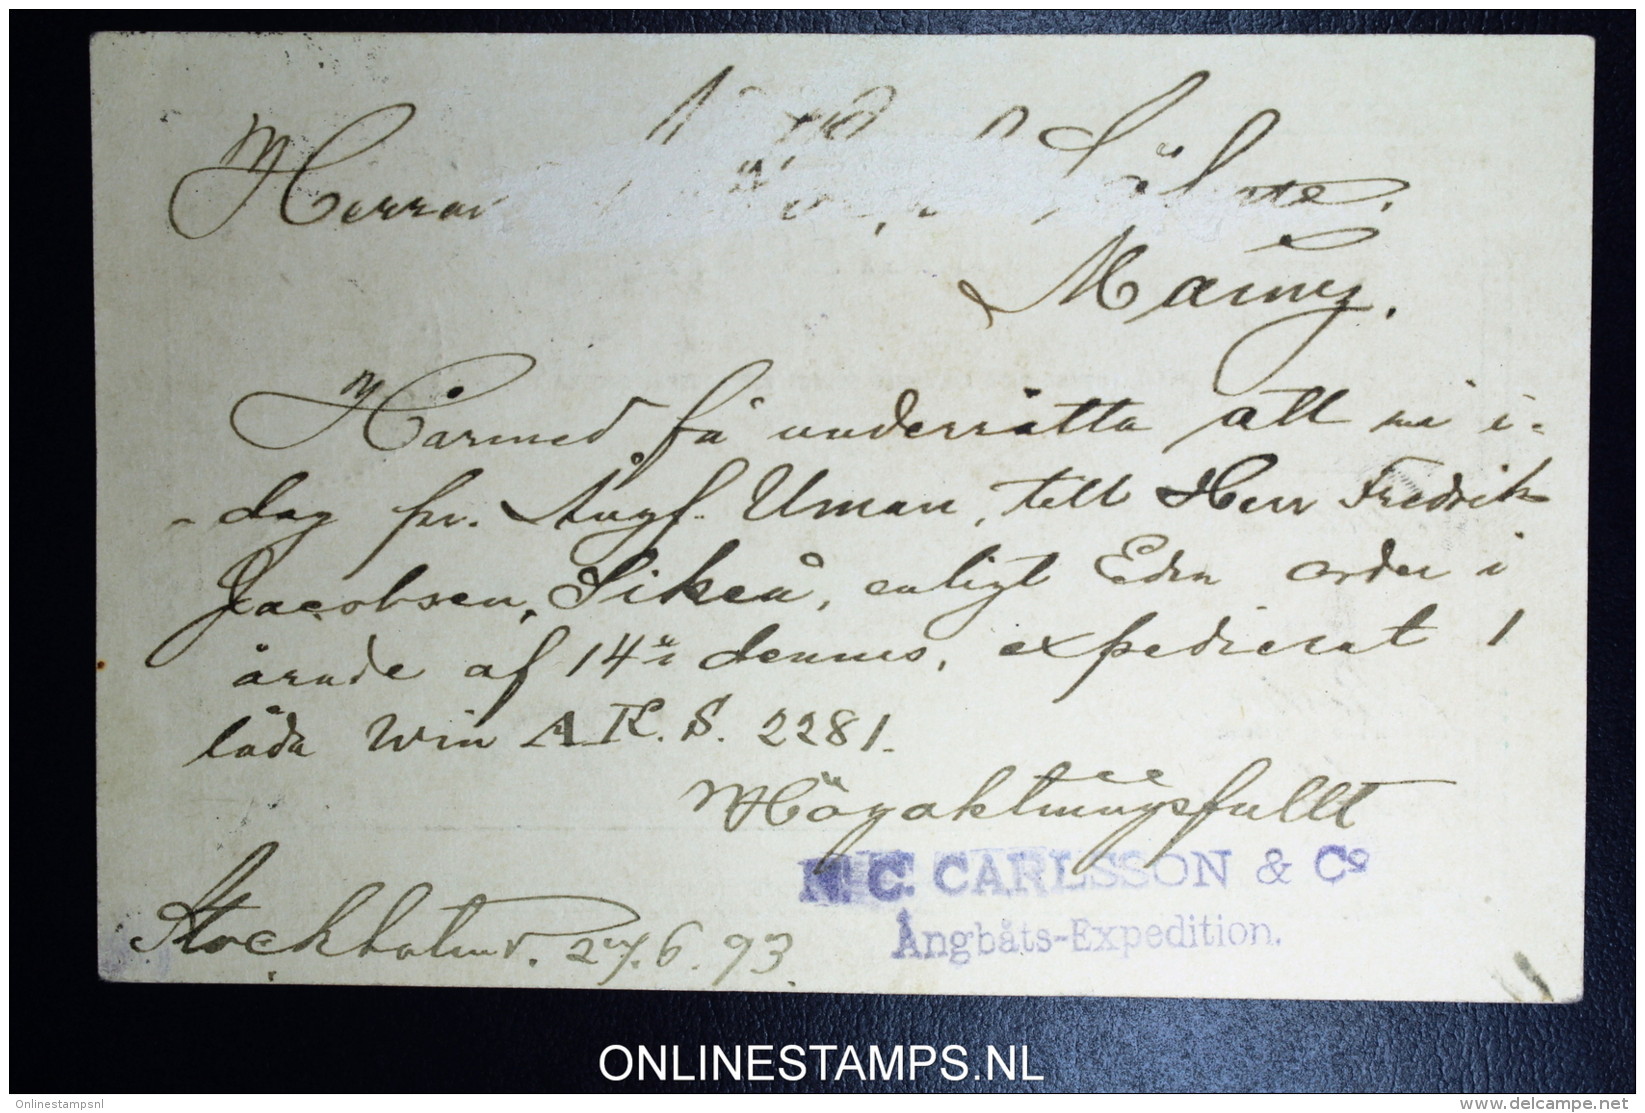 Herrar
Söhne.
Mainz.
Härmed få underrätta att vi i-
-dag pr. Ångf. Uman, till Herr Fredrik
Jacobsen, Sikeå, enligt Eder order i
ärade af 14de dennes, expedierat 1
låda Win A.K.S. 2281.
Högaktningsfullt
N. C. CARLSSON & Co
Ångbåts-Expedition.
Stockholm d. 27.6.93.
ONLINESTAMPS.NL
Onlinestampsnl
www.delcampe.net